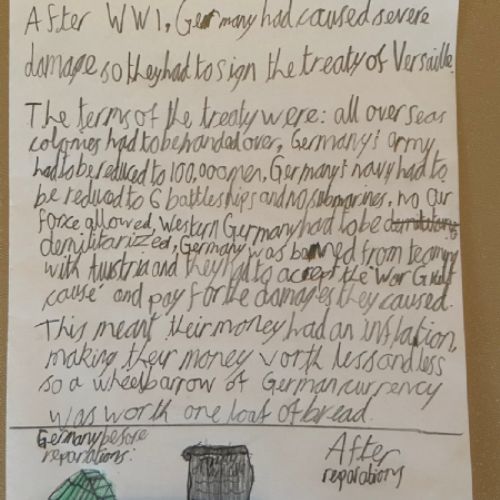 After WW1, Germany had caused severe
damage so they had to sign the treaty of Versaille.
The terms of the treaty were: all over seas
colonies had to be handed over, Germany's army
had to be reduced to 100,000 men, Germany's navy had to
be reduced to 6 battleships and no submarines, no air
force allowed, Western Germany had to be
demilitarized, Germany was banned from teaming
with Austria and they had to accept the 'War Guilt
cause' and pay for the damages they caused.
This meant their money had an inflation,
making their money worth less and less
so a wheelbarrow of German currency
was worth one loaf of bread.
Germany before
reparations:
After
reparations